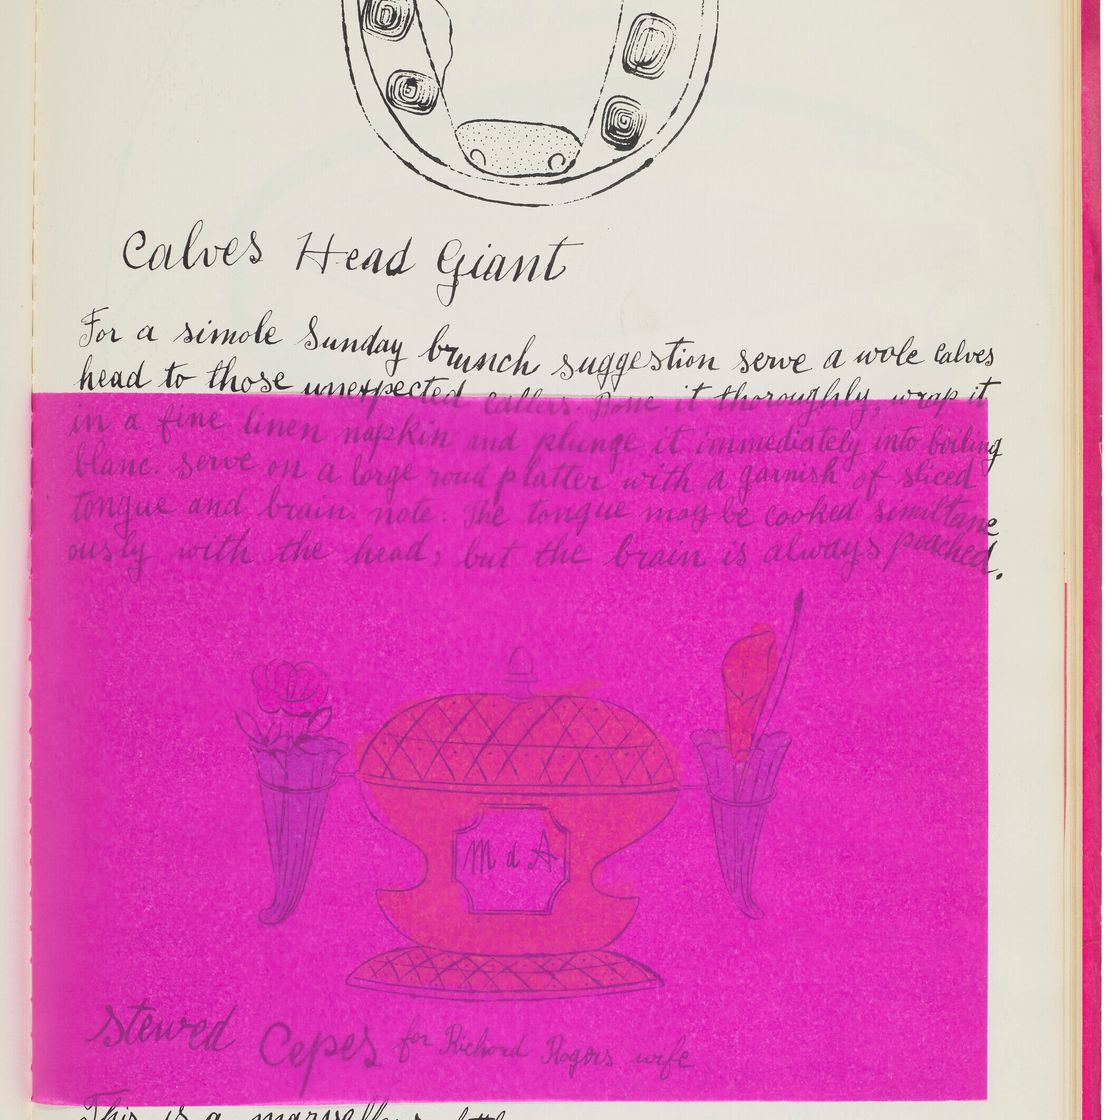 Calves Head Giant
For a simole Sunday brunch suggestion serve a wole calves
head to those unexpected callers. Bone it thoroughly, wrap it
in a fine linen napkin and plunge it immediately into boiling
blanc. serve on a large roud platter with a garnish of sliced
tongue and brain. note: The tongue may be cooked similtane
ously with the head, but the brain is always poached.
M d A
Stewed Cepes for Richard Rogers wife
This is a